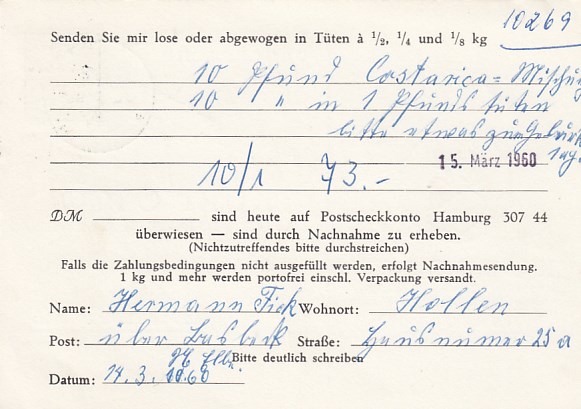 10269
Senden Sie mir lose oder abgewogen in Tüten à 1/2, 1/4 und 1/8 kg
10 Pfund Costarica=Mischung
10 " in 1 Pfunds tüten
bitte etwas zum
15. März 1960
10/1 73.-
DM sind heute auf Postscheckkonto Hamburg 307 44
überwiesen — sind durch Nachnahme zu erheben.
(Nichtzutreffendes bitte durchstreichen)
Falls die Zahlungsbedingungen nicht ausgefüllt werden, erfolgt Nachnahmesendung.
1 kg und mehr werden portofrei einschl. Verpackung versandt.
Name: Hermann Fick Wohnort: Hollen
Post: über Lasbeck Straße: Hausnumer 25a
Bitte deutlich schreiben
Datum: 14.3.1960